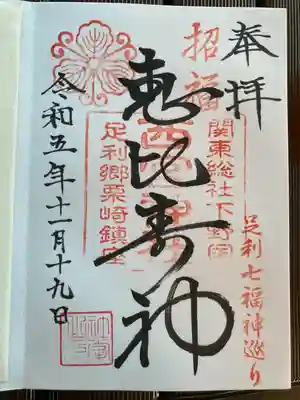 奉拝
招福
足利七福神巡り
関東総社下野国
恵比寿神
足利郷栗崎鎮座
令和五年十一月十九日